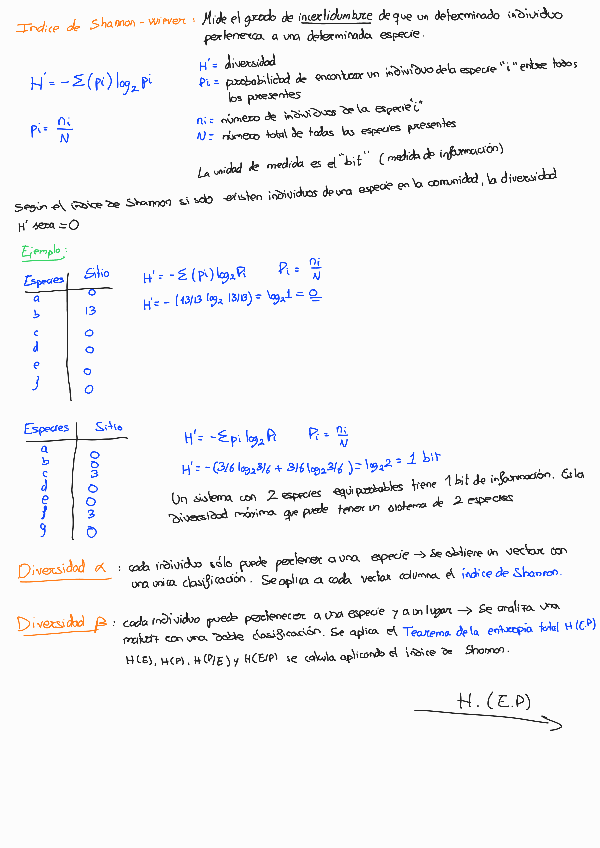 Indice de Shannon-Wiever: Mide el grado de incertidumbre de que un determinado individuo
pertenezca a una determinada especie.
H' = diversidad
H' = -Σ(pi) log₂ pi
Pi = probabilidad de encontrar un individuo de la especie "i" entre todos
los presentes
pi = ni/N
ni = número de individuos de la especie "i"
N = número total de todas las especies presentes
La unidad de medida es el "bit" (medida de información)
Según el índice de Shannon si solo existen individuos de una especie en la comunidad, la diversidad
H' sera = 0
Ejemplo:
Especies Sitio
H' = -Σ(pi) log₂ Pi Pi = ni/N
a 0
H' = -(13/13 log₂ 13/13) = log₂1 = 0
b 13
c 0
d 0
e 0
f 0
Especies Sitio
H' = -Σ pi log₂ Pi Pi = ni/N
a 0
b 0
c 3
H' = -(3/6 log₂ 3/6 + 3/6 log₂ 3/6) = log₂2 = 1 bit
d 0
e 0
f 3
g 0
Un sistema con 2 especies equiprobables tiene 1 bit de información. Es la
diversidad máxima que puede tener un sistema de 2 especies
Diversidad α: cada individuo sólo puede pertener a una especie → Se obtiene un vector con
una unica clasificación. Se aplica a cada vector columna el índice de Shannon.
Diversidad β: cada individuo puede pertenecer a una especie y a un lugar → Se analiza una
matriz con una doble clasificación. Se aplica el Teorema de la entropia total H(E.P)
H(E), H(P), H(P/E) y H(E/P) se calcula aplicando el índice de Shannon.
H.(E.P)